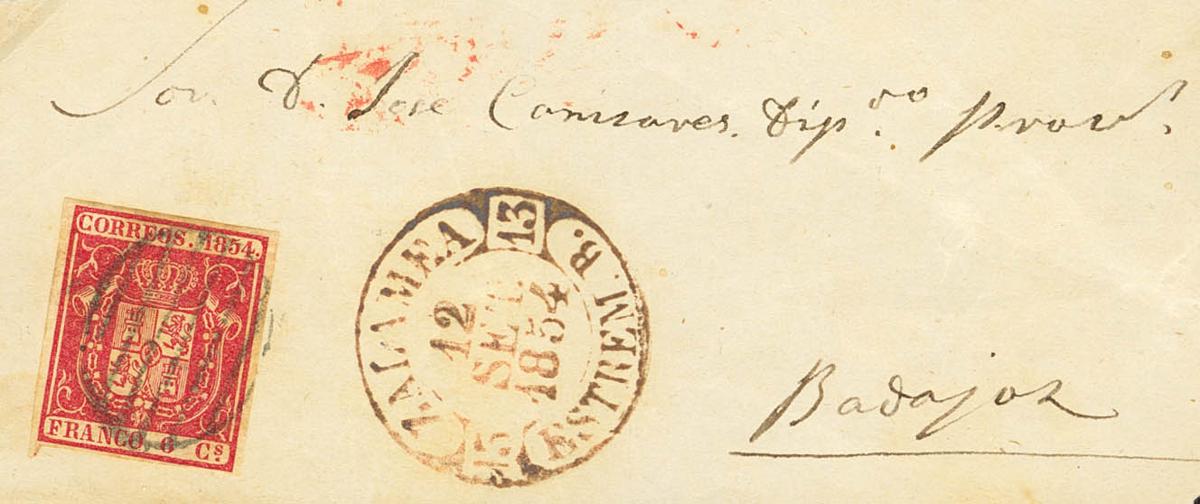 Sor. D. Jose Canizares. Dipdo. Prov.
CORREOS. 1854.
FRANCO, 6 Cs
ZALAMEA
13
ESTREM. B.
12
SET.
1854
Badajoz